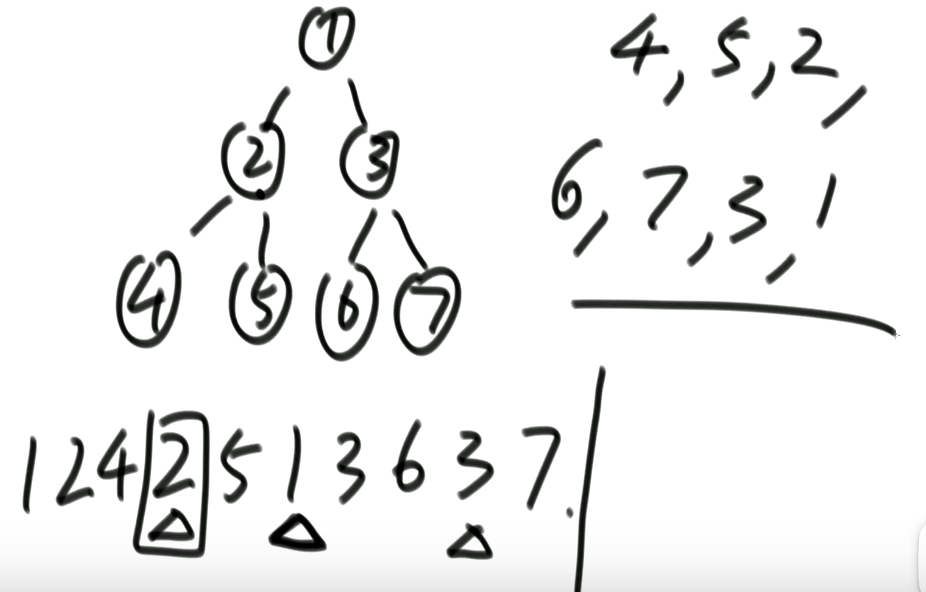 1
2 3
4 5 6 7
4, 5, 2,
6, 7, 3, 1
1 2 4 2 5 1 3 6 3 7.